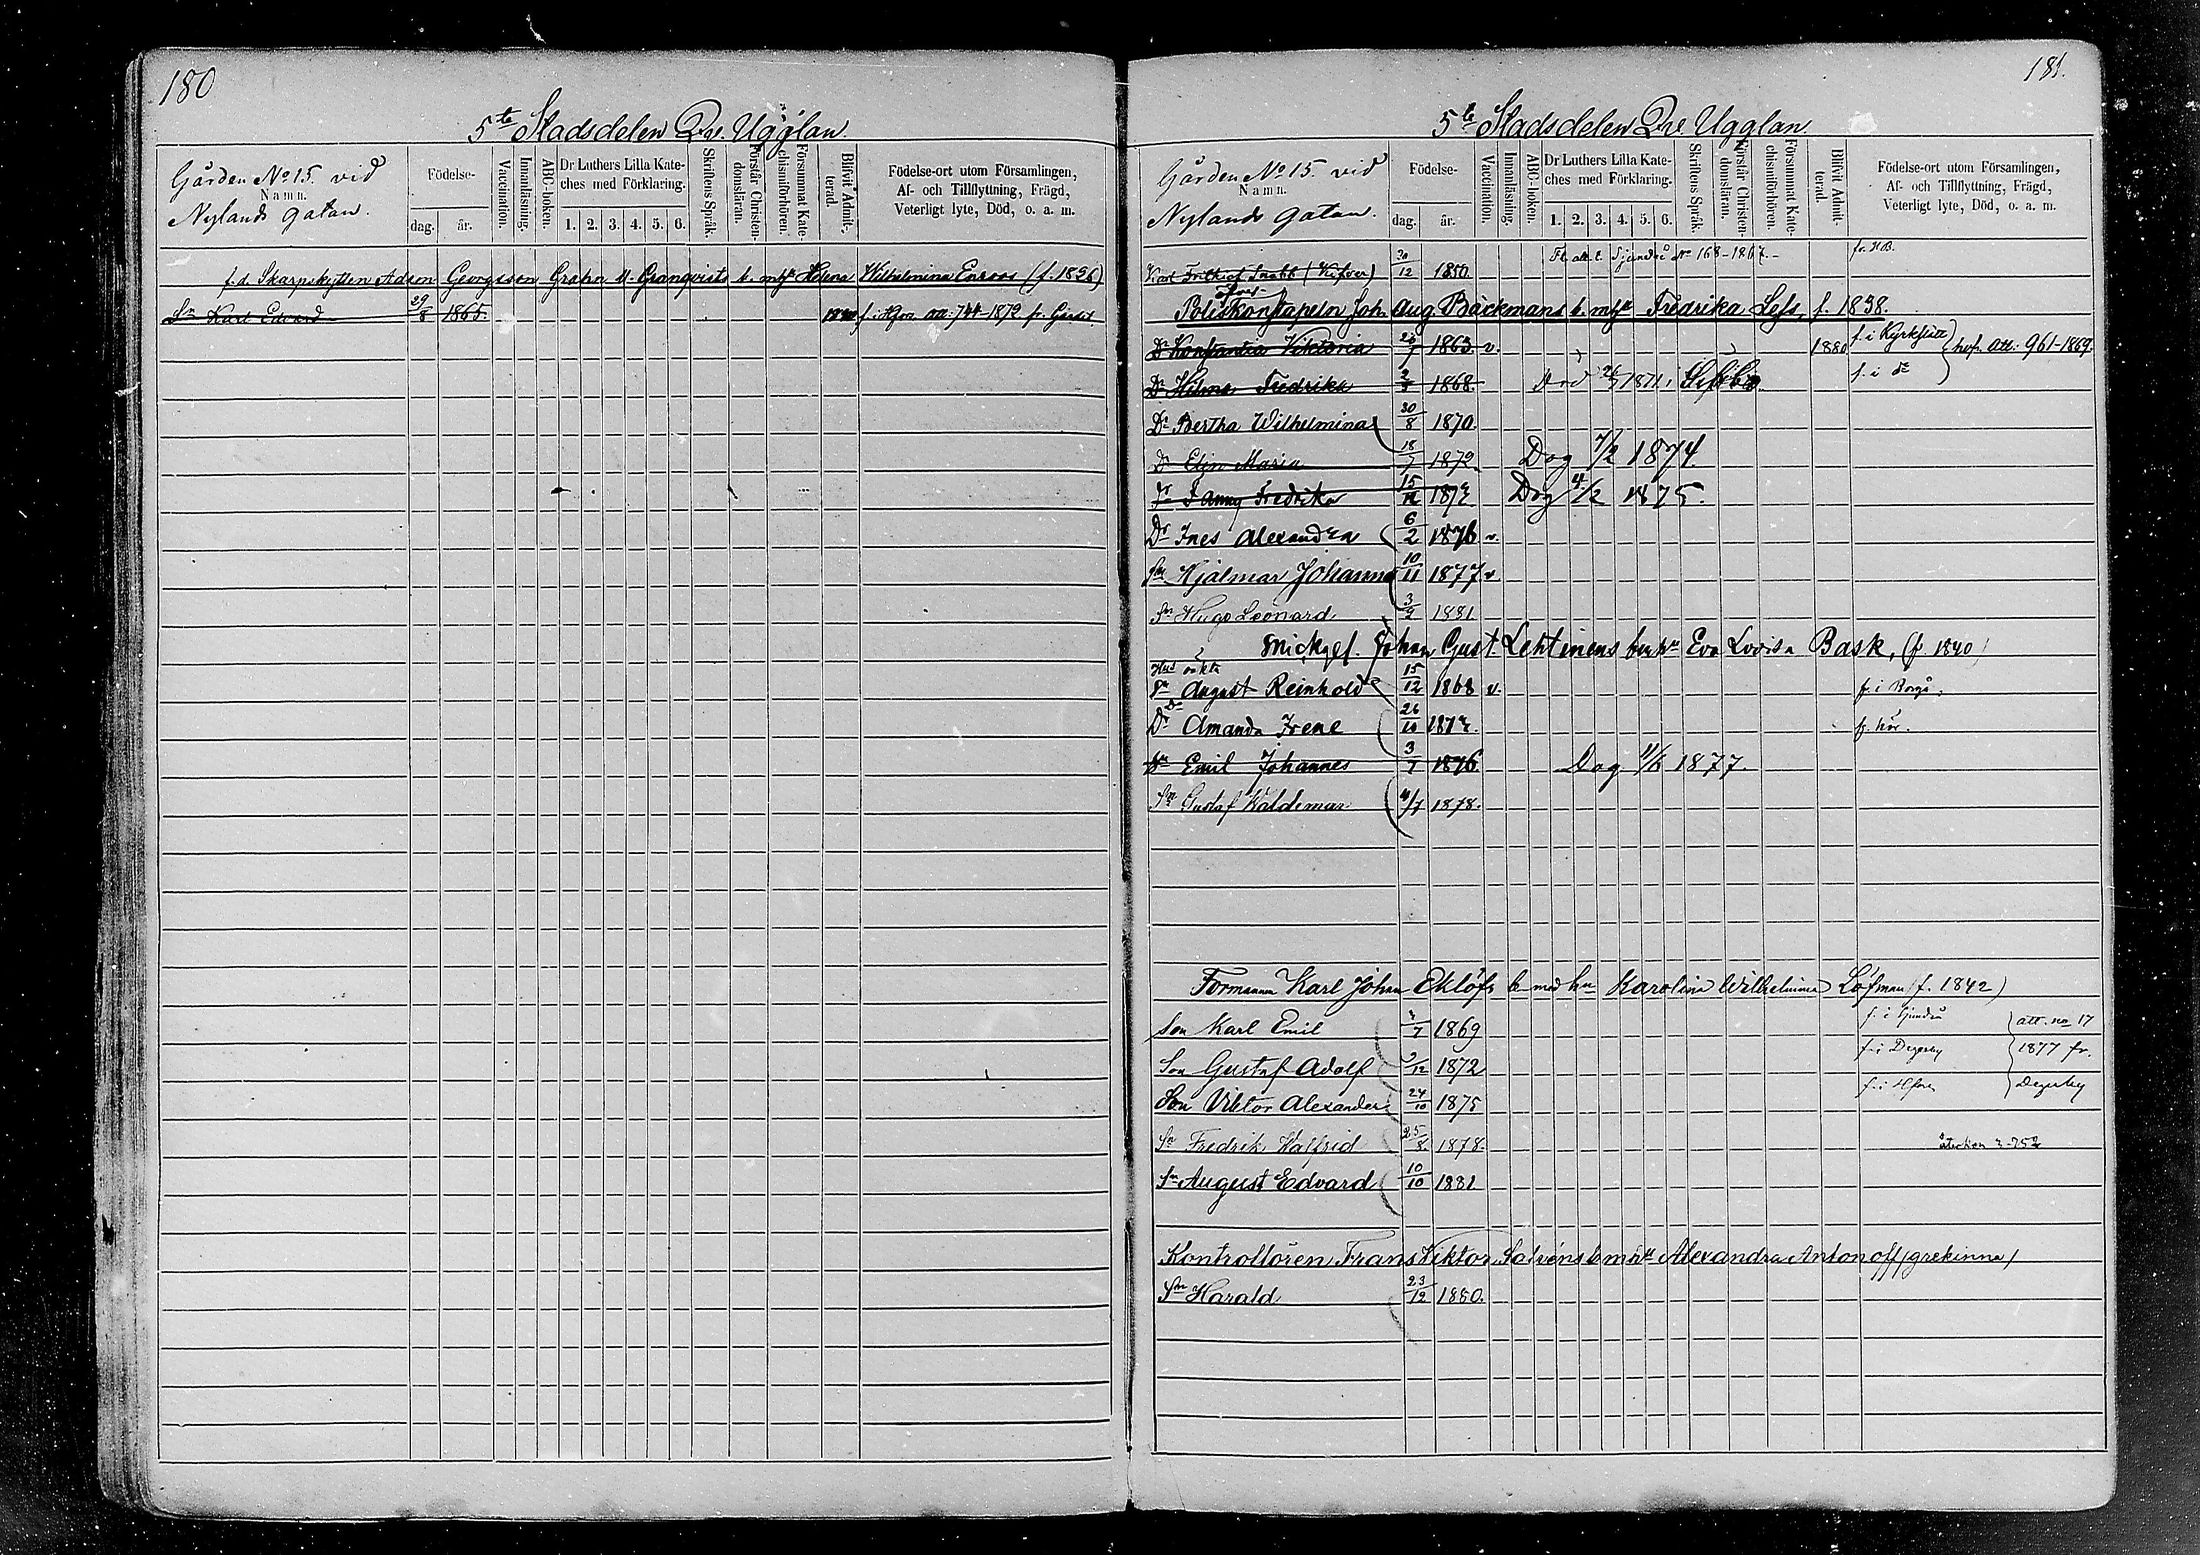 180
5te Stadsdelen Qvr. Ugglan.
Gården No 15. vid
Namn.
Nylands gatan.
Födelse-
dag. år.
Vaccination.
Innanläsning.
ABC-boken.
Dr Luthers Lilla Kate-
ches med Förklaring.
1. 2. 3. 4. 5. 6.
Skriftens Språk.
Förstår Christen-
domsläran.
Försummat Kate-
chismiförhören.
Blifvit Admit-
terad.
Födelse-ort utom Församlingen,
Af- och Tillflyttning, Frägd,
Veterligt lyte, Död, o. a. m.
f.d. Skarpskytten Adam Georgsson Grahn Granqvists b. m. Helena Wilhelmina Enroos (f. 1836)
Sn Karl Edvard 29/8 1865. att. 1872 fr.
181.
5te Stadsdelen Qvr. Ugglan.
Gården No 15. vid
Namn.
Nylands gatan.
Födelse-
dag. år.
Vaccination.
Innanläsning.
ABC-boken.
Dr Luthers Lilla Kate-
ches med Förklaring.
1. 2. 3. 4. 5. 6.
Skriftens Språk.
Förstår Christen-
domsläran.
Försummat Kate-
chismiförhören.
Blifvit Admit-
terad.
Födelse-ort utom Församlingen,
Af- och Tillflyttning, Frägd,
Veterligt lyte, Död, o. a. m.
Karl Frithiof 12 1850. att. t. Sjundeå No 168-1867.
Poliskonstapeln Joh. Aug. Bäckmans b. m. Fredrika Lefs, f. 1838.
Dr Konstantia Viktoria 1863. v. 1880 f. i Kyrkslätt att. 961-1869.
Dr Hilma Fredrika 1868. Död 1871. f. i do
Dr Bertha Wilhelmina 30/8 1870.
Dr Elin Maria 18/7 1872. Dog 7/2 1874.
Dr Fanny Fredrika 15/12 Dog 4/2 1875.
Dr Ines Alexandra 6/2 1876 v.
Sn Hjalmar Johannes 10/11 1877 v
Sn Hugo Leonard 3/9 1881.
Johan Gust. Lehtinens Eva Lovisa Bask, (f 1840)
Sn August Reinhold 15/12 1868 v. f. i Borgå.
Dr Amanda Irene 26/10 f. här.
Sn Emil Johannes 3/7 1876. Dog 11/6 1877.
Sn Gustaf Waldemar 4/7 1878.
Formannen Karl Johan Eklöfs b med hu Karolina Wilhelmina Löfman (f. 1842)
Son Karl Emil 1869 f. i Sjundeå att. no 17
Son Gustaf Adolf 1872 f. i Degerby 1877 fr.
Son Viktor Alexander 24/10 1875 f. i Hfors Degerby
Sn Fredrik Walfrid 25/8. 1878.
Sn August Edvard 10/10 1881
Kontrollören Frans Viktor b. m. Alexandra Antonoff (grekinna)
Sn Harald 23/12 1880.